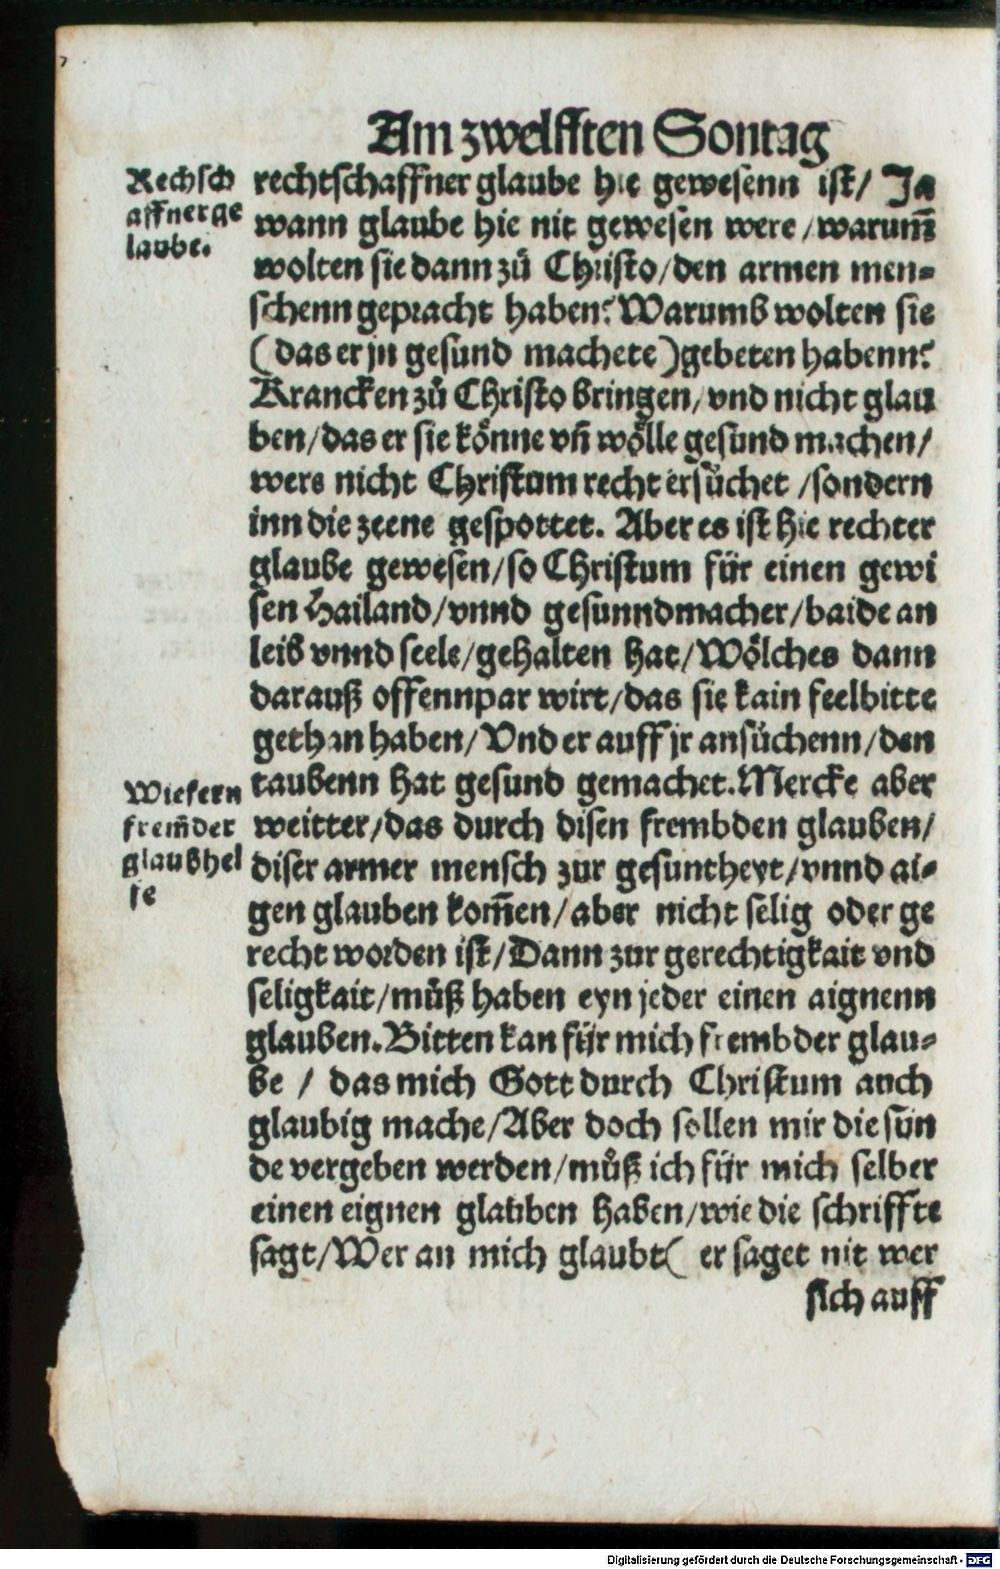 Am zwelfften Sontag
Rechsch
affner ge
laube.
rechtschaffner glaube hie gewesenn ist/ Ja
wann glaube hie nit gewesen were/warum̄
wolten sie dann zů Christo/den armen men⸗
schenn gepracht haben? Warumb wolten sie
(das er jn gesund machete) gebeten habenn?
Krancken zů Christo bringen/vnd nicht glau
ben/das er sie könne vn̄ wölle gesund machen/
were nicht Christum recht ersůchet/sondern
inn die zeene gespottet. Aber es ist hie rechter
glaube gewesen/so Christum für einen gewi
sen Hailand/vnnd gesunndmacher/baide an
leib vnnd seele/gehalten hat/Wölches dann
darauß offennpar wirt/das sie kain feelbitte
gethan haben/Vnd er auff jr ansůchenn/den
taubenn hat gesund gemachet. Mercke aber
Wiefern
frem̄der
glaub hel
fe
weitter/das durch disen frembden glauben/
diser armer mensch zur gesuntheyt/vnnd ai⸗
gen glauben kom̄en/aber nicht selig oder ge
recht worden ist/Dann zur gerechtigkait vnd
seligkait/můß haben eyn jeder einen aignenn
glauben. Bitten kan für mich frembder glau⸗
be / das mich Gott durch Christum auch
glaubig mache/Aber doch sollen mir die sün
de vergeben werden/můß ich für mich selber
einen eignen glauben haben/wie die schriffte
sagt/Wer an mich glaubt( er saget nit wer
sich auff
Digitalisierung gefördert durch die Deutsche Forschungsgemeinschaft - DFG